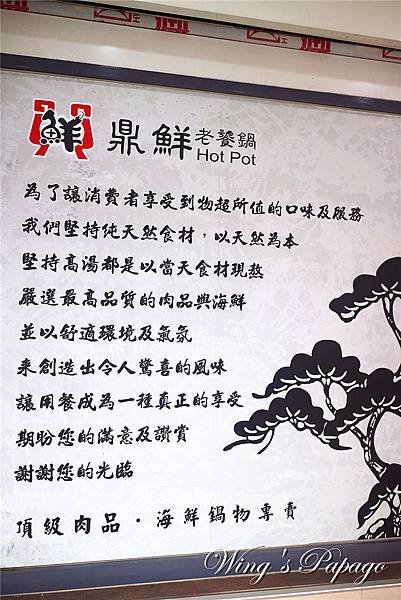 鮮
鼎鮮老饕鍋
Hot Pot
為了讓消費者享受到物超所值的口味及服務
我們堅持純天然食材，以天然為本
堅持高湯都是以當天食材現熬
嚴選最高品質的肉品與海鮮
並以舒適環境及氣氛
來創造出令人驚喜的風味
讓用餐成為一種真正的享受
期盼您的滿意及讚賞
謝謝您的光臨
頂級肉品・海鮮鍋物專賣
Wing's Papago